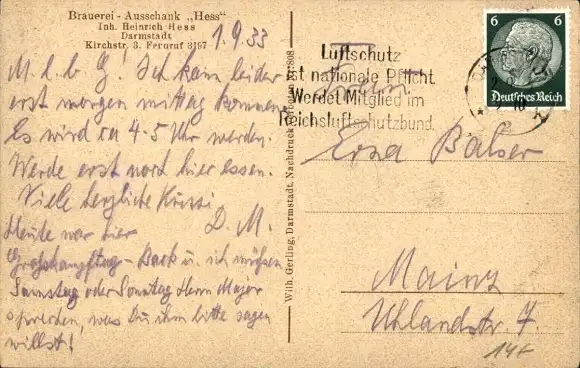 Brauerei - Ausschank „Hess"
Inh. Heinrich Hess
Darmstadt
Kirchstr. 3. Fernruf 3197
1.9.33
M. l. b. G! Ich kann leider
erst morgen mittag kommen
Es wird ca 4-5 Uhr werden.
Werde erst noch hier essen.
Viele herzliche Küssi
D. M.
Heute war hier
Großkampftag - Back u. ich müssen
Samstag oder Sonntag Herrn Major
sprechen, was Du ihm bitte sagen
willst!
Wilh. Gerling, Darmstadt, Nachdruck verboten
808
Luftschutz
ist nationale Pflicht
Werdet Mitglied im
Reichsluftschutzbund.
6 6
Deutsches Reich
Erna Balser
Mainz
Uhlandstr. 7.
14F